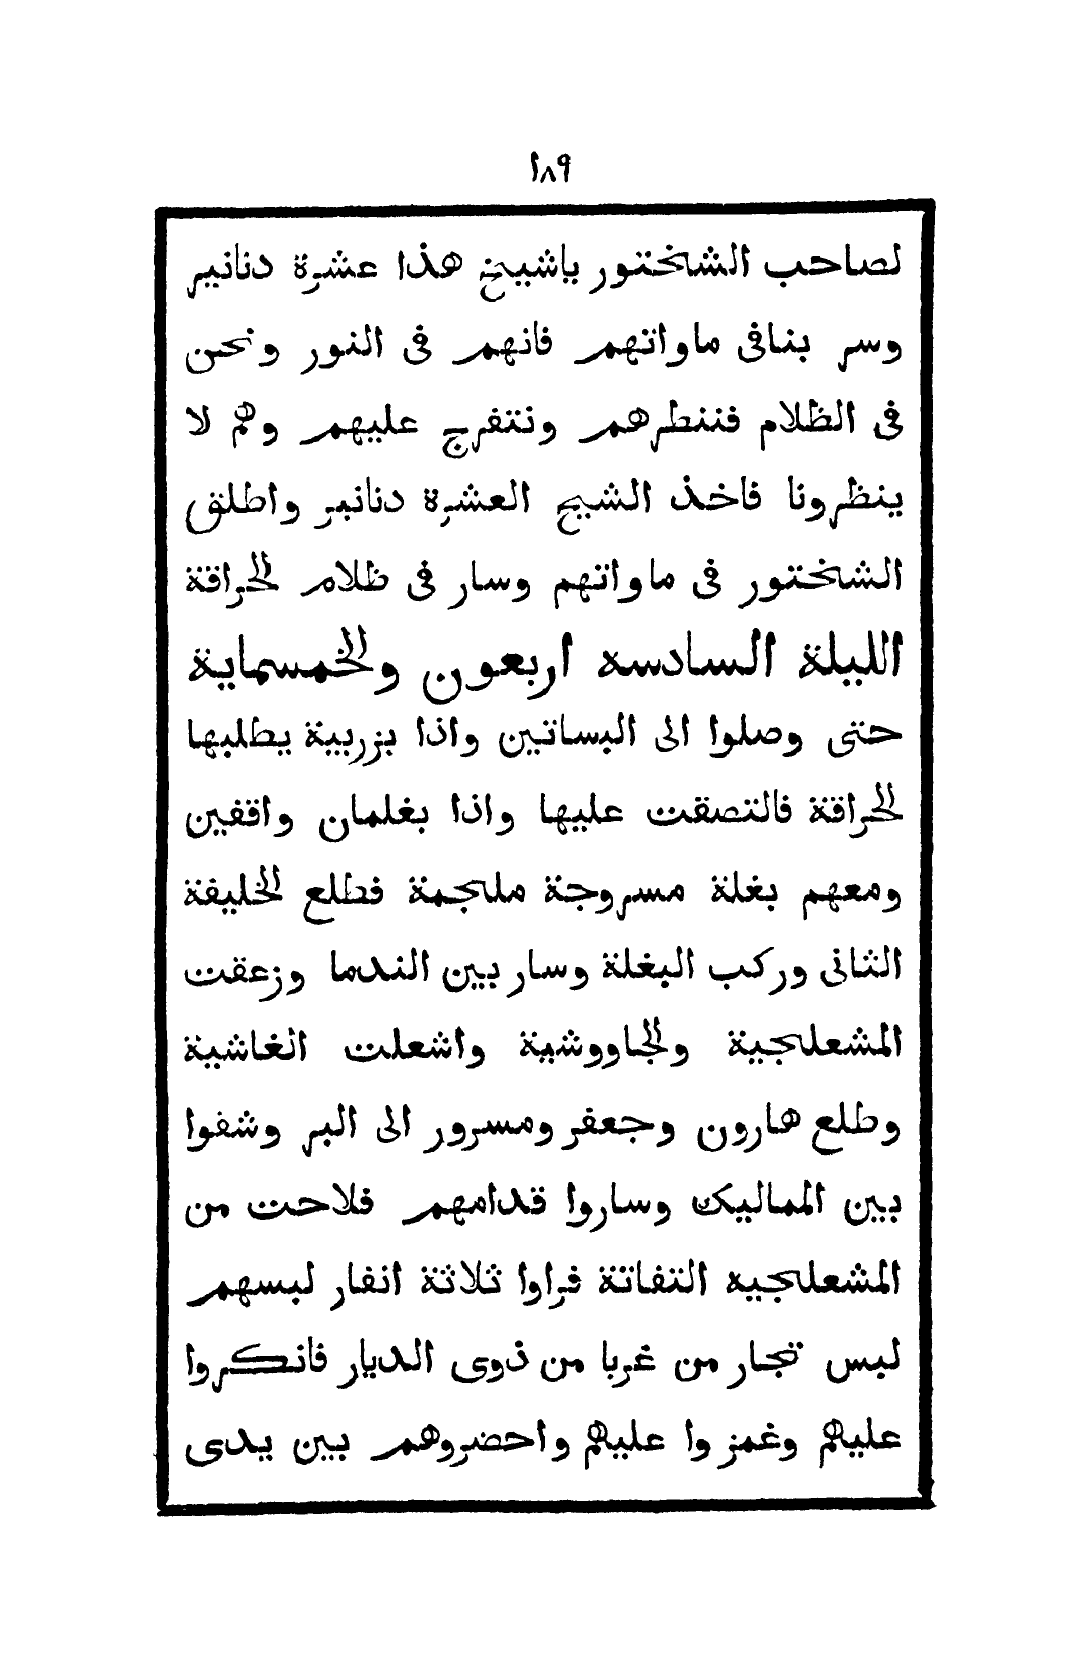 ١٨٩
لصاحب الشختور ياشيخ هذا عشرة دنانير
وسر بنافى ماواتهم فانهم فى النور ونحن
فى الظلام فننطرهم ونتفرج عليهم وهم لا
ينظرونا فاخذ الشيح العشرة دنانير واطلق
الشختور فى ماواتهم وسار فى ظلام الحراقة
الليلة السادسه اربعون والخمسماية
حتى وصلوا الى البساتين واذا بزربية يطلبها
الحراقة فالتصقت عليها واذا بغلمان واقفين
ومعهم بغلة مسروجة ملجمة فطلع الخليفة
الثانى وركب البغلة وسار بين الندما وزعقت
المشعلجية والجاووشية واشعلت الغاشية
وطلع هارون وجعفر ومسرور الى البر وشفوا
بين المماليك وساروا قدامهم فلاحت من
المشعلجيه التفاتة فراوا ثلاثة انفار لبسهم
لبس تجار من غربا من ذوى الديار فانكروا
عليهم وغمزوا عليهم واحضروهم بين يدى